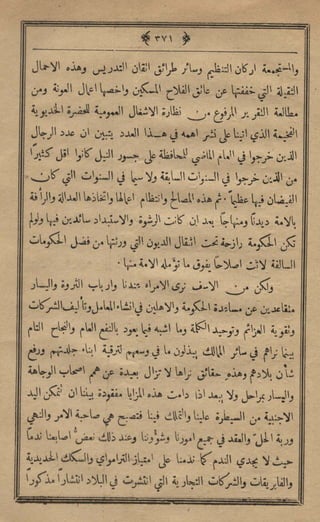 ﴿ ٣٧١ ﴾
والمستجمعة اركان التنظيم وسائر طرائق اتقان التدريس وهذه الاحمال
الثقيلة التي خففتها عن عاتق الفلاح المسكين واخصها اعمال العونة ومن
مطالعة التقرير المرفوع من نظارة الاشغال العمومية للحضرة الخديوية
الفخيمة الذي اتينا على نشر اهمه في هذا العدد يتبين ان عدد الرجال
الذين خرجوا في العام الماضي للمحافظة على جسور النيل كانوا اقل كثيرًا
من الذين خرجوا في السنوات السابقة ولا سيما في السنوات التي كان
الفيضان فيها عظيمًا. ثم هذه المصالح وانتظام اعمالها واتخاذها العدالة والرأفة
بالامة ديدنًا ومنهاجًا بعد ان كانت الرشوة والاستبداد سائدين فيها ولو لم
تكن الحكومة رازحة تحت اثقال الديون التي ورثتها من فضل الحكومات
السالفة لاتت اصلاحًا يفوق ما تؤمله الامة منها.
ولكن من الاسف نرى الامراء عندنا وارباب الثروة واليسار
متقاعدين عن مساعدة الحكومة والاهلين في انشاء المعامل وتأليف الشركات
وتقوية العزائم وتوحيد الكلمة وما اشبه فيما يعود بالنفع العام والنجاح التام
بينما نراهم في سائر الممالك يبذلون ما في وسعهم لترقية ابناء جلدتهم ورفع
شأن بلادهم وهذه حقائق نراها لا تزال بعيدة عن هم اصحاب الوجاهة
واليسار بمراحل ولا يبعد اذا دامت هذه المزايا مفقودة بيننا ان تتمكن اليد
الاجنبية من السيطرة علينا والتملك فينا فتصبح هي صاحبة الامر والنهي
وربة الحل والعقد في جميع امورنا وشؤوننا وعند ذلك نعض اصابعنا ندمًا
حيث لا يجدي الندم كما ندمنا على امتياز الترامواي والسكك الحديدية
والفابريقات والشركات التجارية التي انتشرت في البلاد انتشارًا مذكورًا